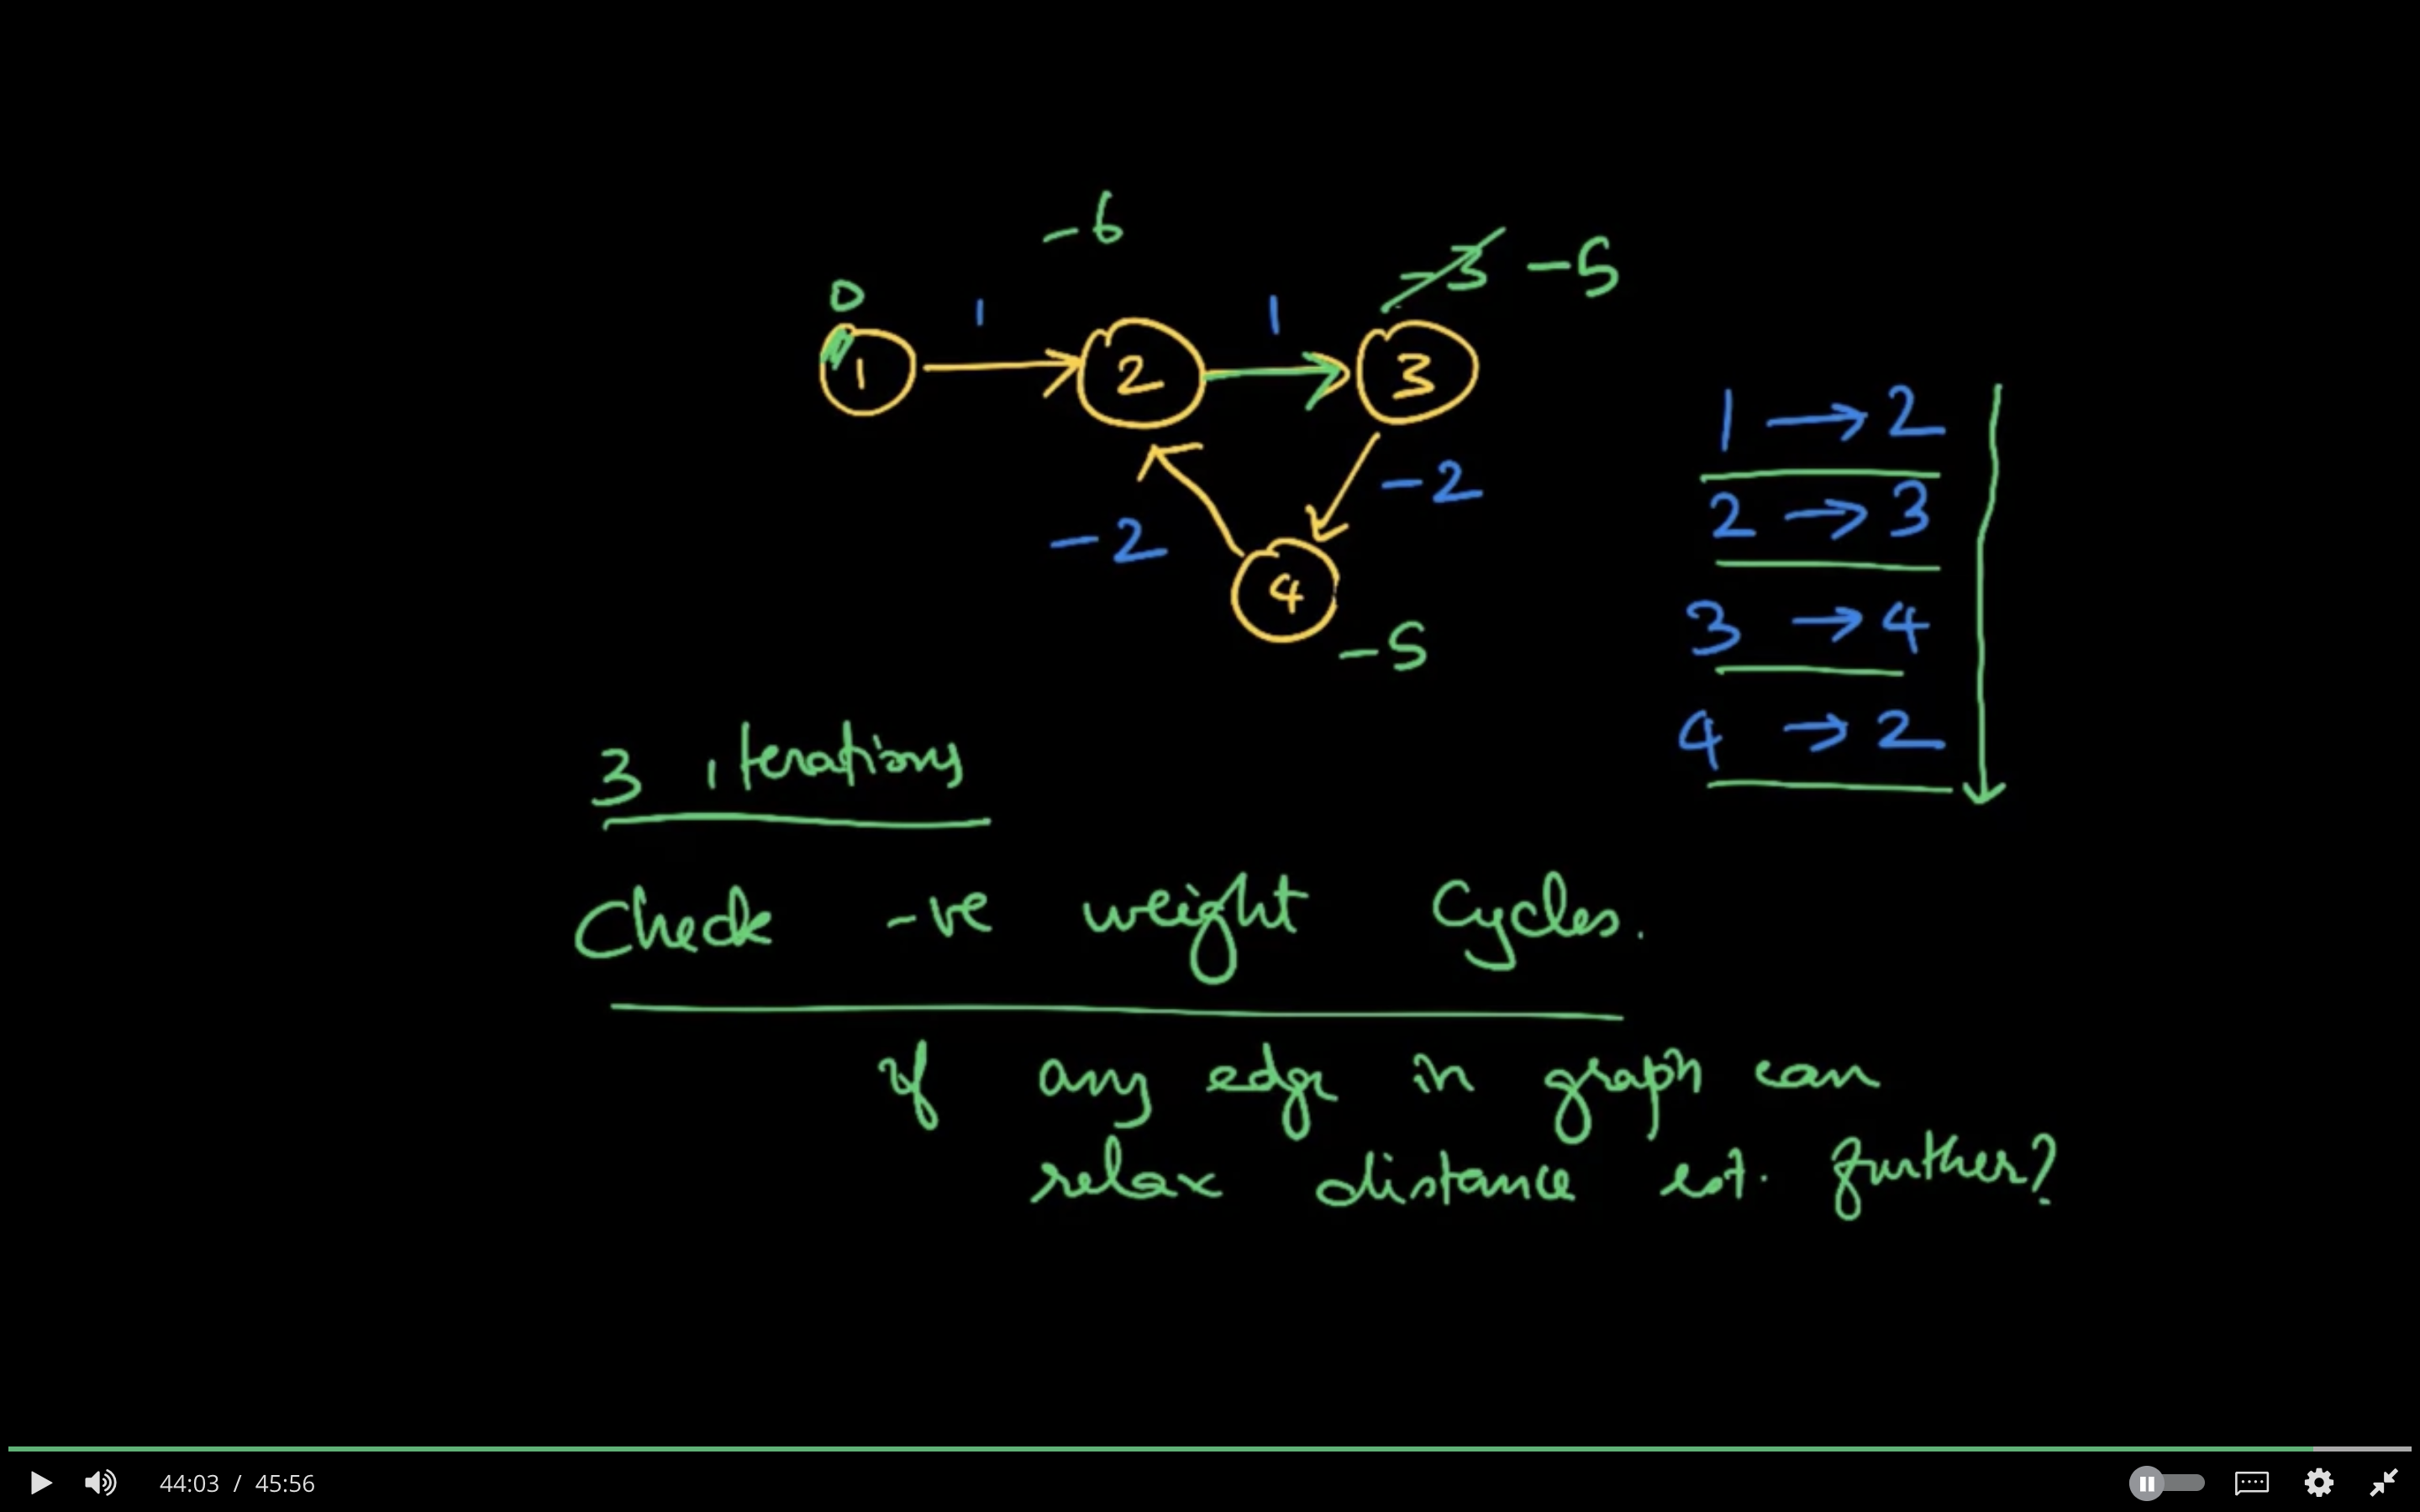 -6
-3 -5
0
1
1
1
2
3
-2
-2
4
-5
1 → 2
2 → 3
3 → 4
4 → 2
3 iterations
Check -ve weight Cycles.
if any edge in graph can
relax distance est. further?
44:03 / 45:56